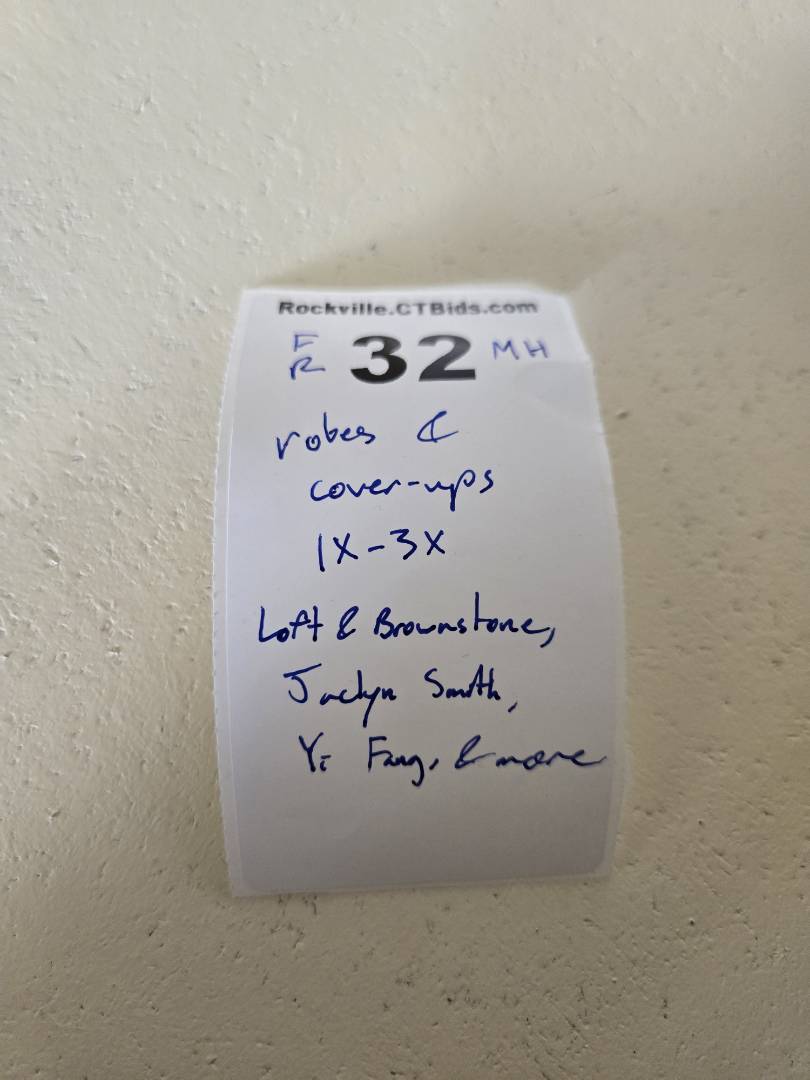 Rockville.CTBids.com
FR 32 MH
robes &
cover-ups
1X-3X
Loft & Brownstone,
Jaclyn Smith,
Yi Fang, & more